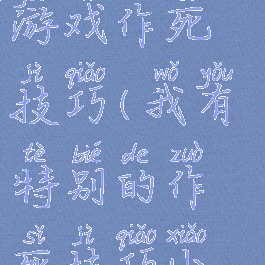 游戏作死
jì qiǎo wǒ yǒu
技巧(我有
tè bié de zuò
特别的作
sǐ jì qiǎo xiǎo
死技巧小